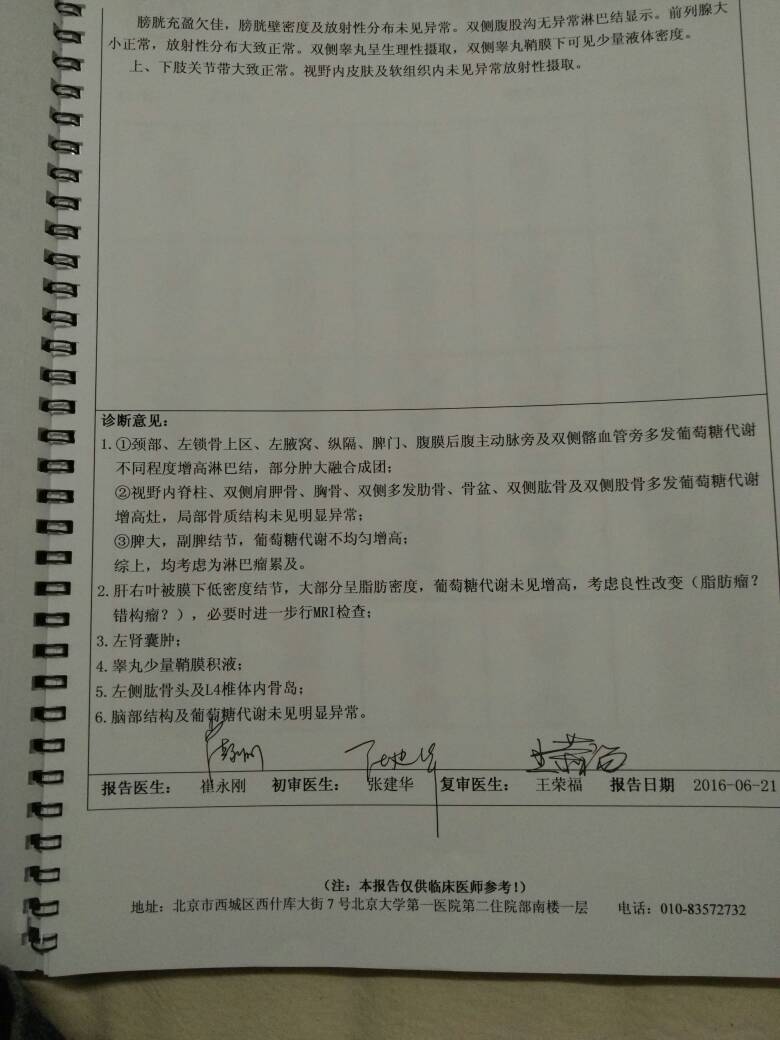 膀胱充盈欠佳，膀胱壁密度及放射性分布未见异常。双侧腹股沟无异常淋巴结显示。前列腺大
小正常，放射性分布大致正常。双侧睾丸呈生理性摄取，双侧睾丸鞘膜下可见少量液体密度。
上、下肢关节带大致正常。视野内皮肤及软组织内未见异常放射性摄取。
诊断意见：
1.①颈部、左锁骨上区、左腋窝、纵隔、脾门、腹膜后腹主动脉旁及双侧髂血管旁多发葡萄糖代谢
不同程度增高淋巴结，部分肿大融合成团；
②视野内脊柱、双侧肩胛骨、胸骨、双侧多发肋骨、骨盆、双侧肱骨及双侧股骨多发葡萄糖代谢
增高灶，局部骨质结构未见明显异常；
③脾大，副脾结节，葡萄糖代谢不均匀增高；
综上，均考虑为淋巴瘤累及。
2.肝右叶被膜下低密度结节，大部分呈脂肪密度，葡萄糖代谢未见增高，考虑良性改变（脂肪瘤？
错构瘤？），必要时进一步行MRI检查；
3.左肾囊肿；
4.睾丸少量鞘膜积液；
5.左侧肱骨头及L4椎体内骨岛；
6.脑部结构及葡萄糖代谢未见明显异常。
报告医生： 崔永刚 初审医生： 张建华 复审医生： 王荣福 报告日期 2016-06-21
（注：本报告仅供临床医师参考!）
地址：北京市西城区西什库大街7号北京大学第一医院第二住院部南楼一层 电话：010-83572732